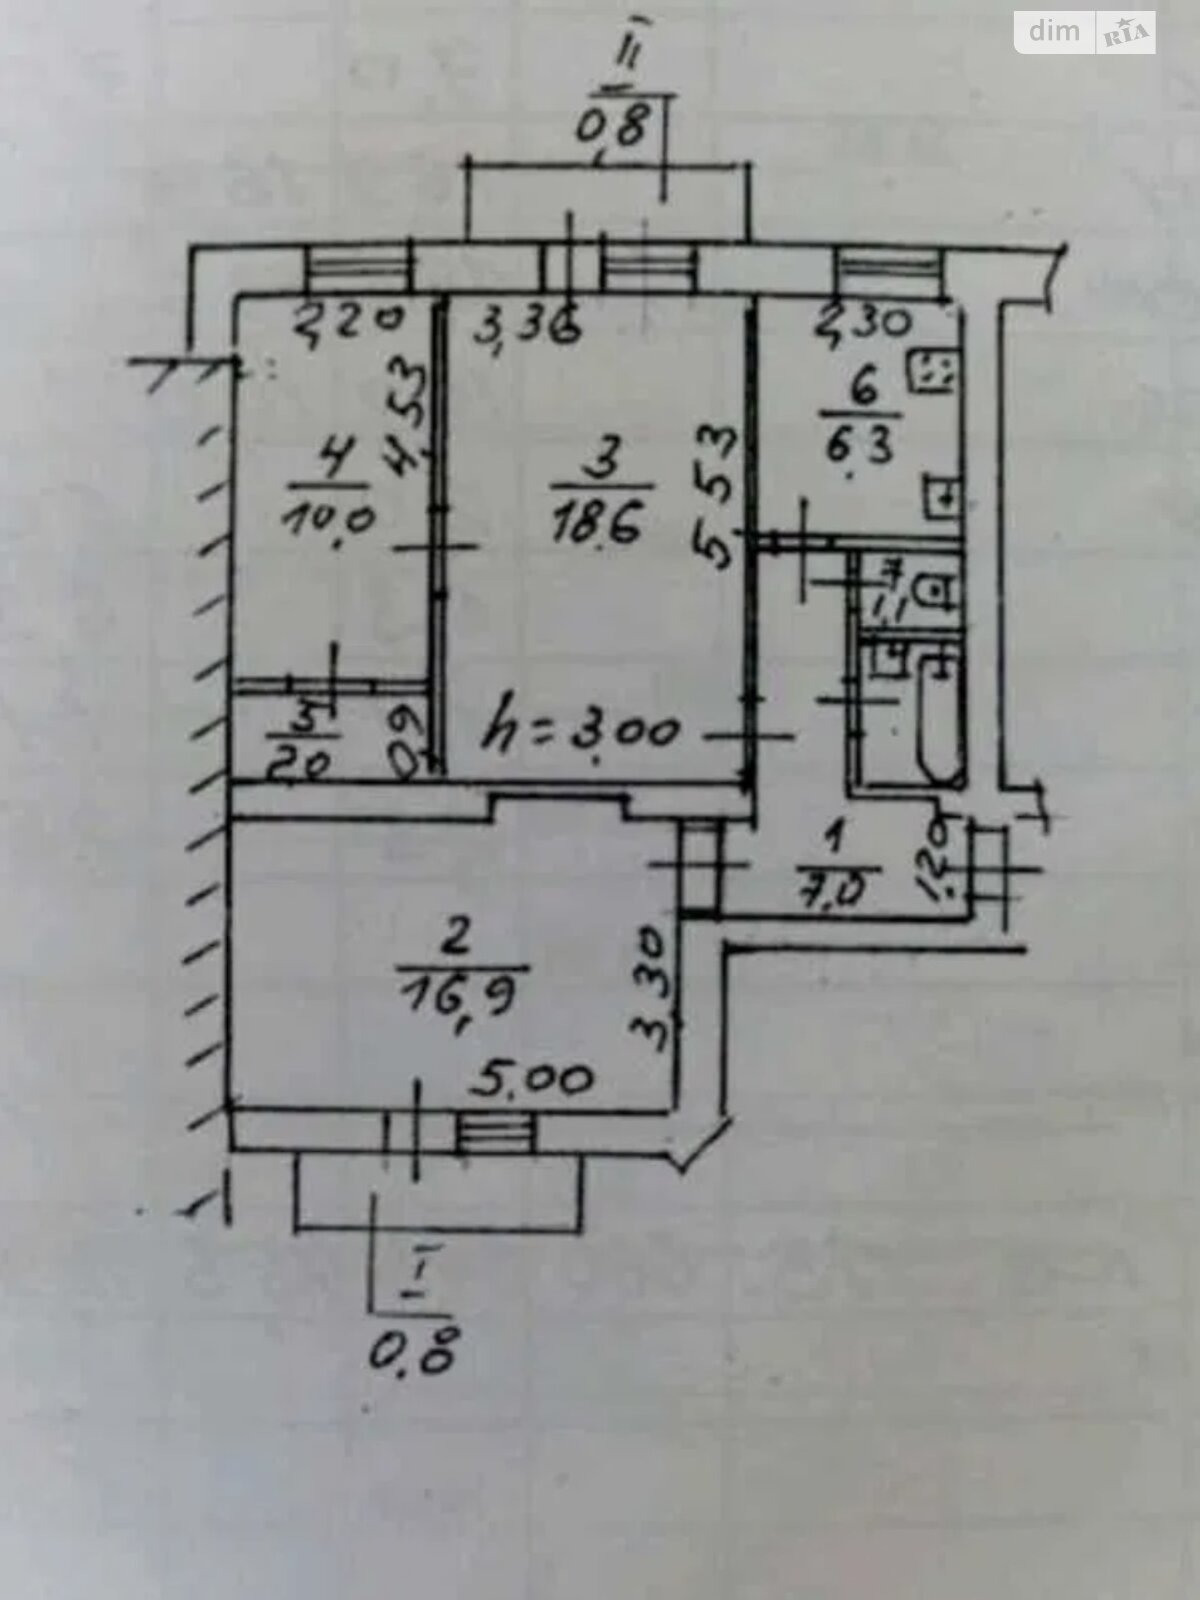 dim RIA
II
0,8
2,20
3,36
2,30
4.53
5.53
6
6.3
4
10.0
3
18.6
7
1,1
5
2.0
0,9
h = 3.00
1
7.0
1.20
2
16,9
3.30
5.00
I
0.8